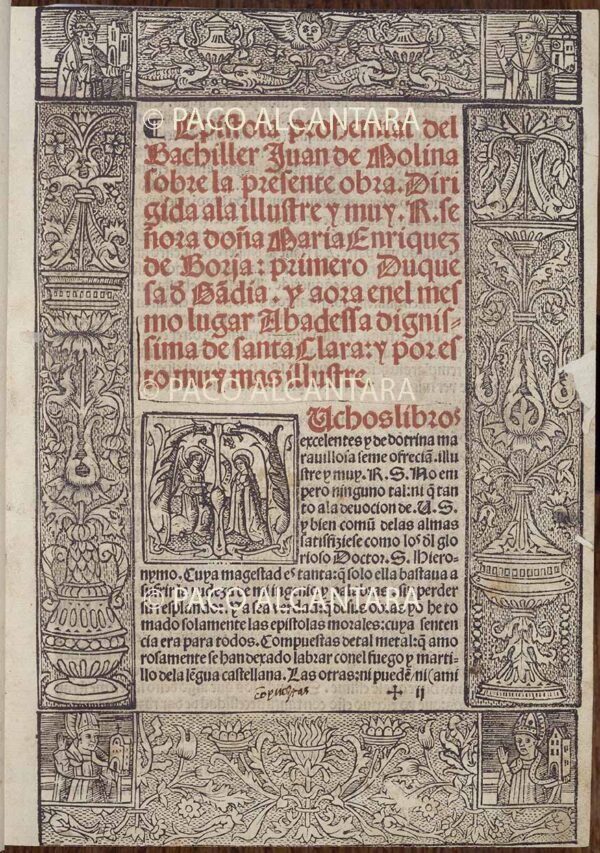 © PACO ALCANTARA
Epistola prohemial del
Bachiller Juan de Molina
sobre la presente obra. Diri
gida ala illustre y muy. R. se
ñora doña Maria Enriquez
de Borja: primero Duque
sa d̃ Gãdia. y aora enel mes
mo lugar Abadessa dignis-
sima de santa Clara: y por es
to muy mas illustre.
© PACO ALCANTARA
Uchos libros
excelentes y de dotrina ma
rauillosa seme ofreciã. illu
stre y muy. R. S. No em
pero ninguno tal: ni q̃ tan
to ala deuocion de. U. S.
y bien comũ delas almas
satisfiziese como los dl̃ glo
rioso Doctor. S. Hiero-
nymo. Cuya magestad es tanta: q̃ solo ella bastaua a
perder
© PACO ALCANTARA
su resplandor. he to
mado solamente las epistolas morales: cuya senten
cia era para todos. Compuestas de tal metal: q̃ amo
rosamente se han dexado labrar conel fuego y marti-
llo dela lẽgua castellana. Las otras: ni puedẽ ni (ami
✠ ij